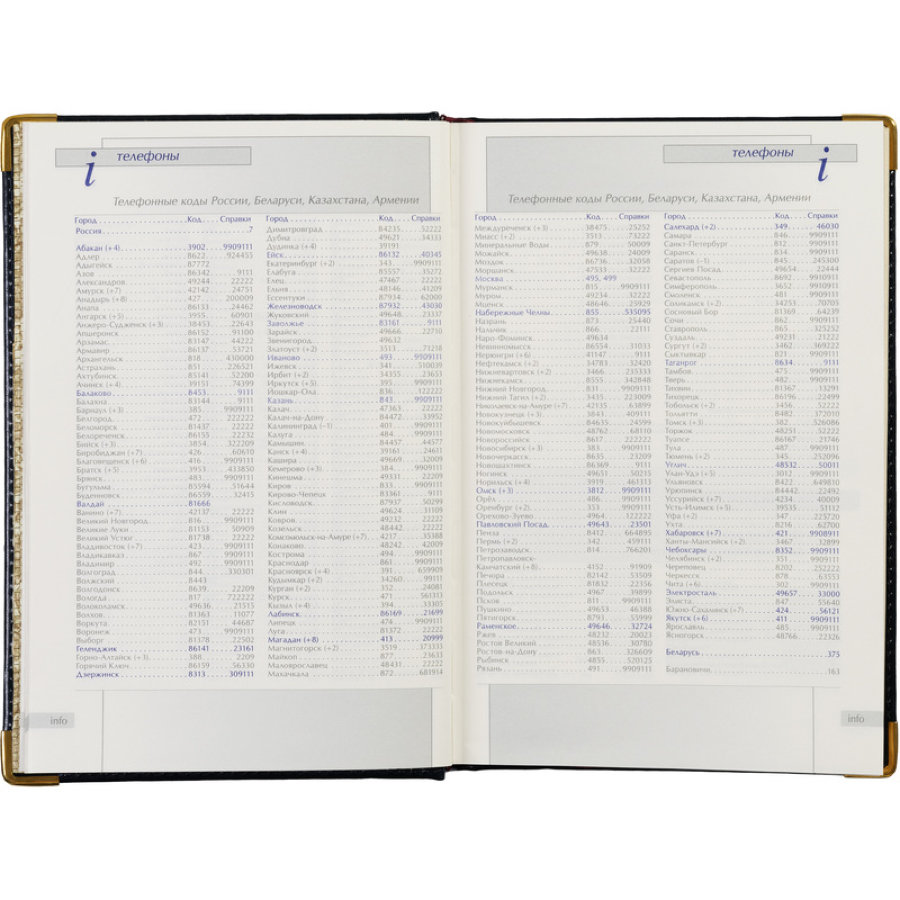 i телефоны
Телефонные коды России, Беларуси, Казахстана, Армении
Город Код Справки
Россия 7
Абакан (+4) 3902 9909111
Адлер 8622 924455
Адыгейск 87772
Азов 86342 9111
Александров 49244 22222
Амурск (+7) 42142 24751
Анадырь (+8) 427 200009
Анапа 86133 24462
Ангарск (+5) 3955 60901
Анжеро-Судженск (+3) 38453 22643
Апшеронск 86152 91100
Арзамас 83147 44222
Армавир 86137 53721
Архангельск 818 430000
Астрахань 851 226521
Ахтубинск 85141 52200
Ачинск (+4) 39151 74399
Балаково 8453 9111
Балахна 83144 9111
Барнаул (+3) 385 9909111
Белгород 472 222222
Беломорск 81437 22222
Белореченск 86155 22232
Бийск (+3) 3854 322209
Биробиджан (+7) 426 60610
Благовещенск (+6) 416 9909111
Братск (+5) 3953 433850
Брянск 483 9909111
Бугульма 85594 51644
Буденновск 86559 32415
Валдай 81666
Ванино (+7) 42137 22222
Великий Новгород 816 9909111
Великие Луки 81153 50909
Великий Устюг 81738 22222
Владивосток (+7) 423 9909111
Владикавказ 867 9909111
Владимир 492 9909111
Волгоград 844 330301
Волжский 8443
Волгодонск 8639 22209
Вологда 817 722222
Волоколамск 49636 21515
Волхов 81363 11077
Воркута 82151 44687
Воронеж 473 9909111
Выборг 81378 22502
Геленджик 86141 23161
Горно-Алтайск (+3) 388 2209
Горячий Ключ 86159 56330
Дзержинск 8313 309111
Город Код Справки
Димитровград 84235 52222
Дубна 49621 34333
Дудинка (+4) 39191
Ейск 86132 40345
Екатеринбург (+2) 343 9909111
Елабуга 85557 35272
Елец 47467 22222
Ельня 48146 41209
Ессентуки 87934 62000
Железноводск 87932 43030
Жуковский 49648 23337
Заволжье 83161 9111
Зарайск 49666 22710
Звенигород 49632
Златоуст (+2) 3513 71218
Иваново 493 9909111
Ижевск 341 510039
Ирбит (+2) 34355 23653
Иркутск (+5) 395 9909111
Йошкар-Ола 836 122222
Казань 843 9909111
Калач 47363 22222
Калач-на-Дону 84472 33952
Калининград (–1) 401 9909111
Калуга 484 9909111
Камышин 84457 44577
Канск (+4) 39161 24611
Кашира 49669 32009
Кемерово (+3) 384 9909111
Кинешма 49331 22209
Киров 833 9909111
Кирово-Чепецк 83361 9111
Кисловодск 87937 50299
Клин 49624 31109
Ковров 49232 22222
Козельск 48442 22222
Комсомольск-на-Амуре (+7) 4217 35388
Конаково 48242 42009
Кострома 494 9909111
Краснодар 861 9909111
Красноярск (+4) 391 659909
Кудымкар (+2) 34260 99111
Курган (+2) 352 24081
Курск 471 561333
Кызыл (+4) 394 33305
Лабинск 86169 21699
Липецк 474 9909111
Луга 81372 22222
Магадан (+8) 413 20999
Магнитогорск (+2) 3519 373333
Майкоп 877 23633
Малоярославец 48431 22222
Махачкала 872 681914
телефоны i
Телефонные коды России, Беларуси, Казахстана, Армении
Город Код Справки
Междуреченск (+3) 38475 25252
Миасс (+2) 3513 73222
Минеральные Воды 879 50009
Можайск 49638 24009
Моздок 86736 32058
Моршанск 47533 32222
Москва 495, 499
Мурманск 815 9909111
Муром 49234 32222
Мценск 48646 25929
Набережные Челны 855 535095
Назрань 873 25440
Нальчик 866 22111
Наро-Фоминск 49634
Невинномысск 86554 31033
Нерюнгри (+6) 41147 9111
Нефтекамск (+2) 34783 32420
Нижневартовск (+2) 3466 235333
Нижнекамск 8555 342848
Нижний Новгород 831 9909111
Нижний Тагил (+2) 3435 223009
Николаевск-на-Амуре (+7) 42135 63899
Новокузнецк (+3) 3843 409111
Новокуйбышевск 84635 24599
Новомосковск 48762 68110
Новороссийск 8617 222222
Новосибирск (+3) 383 9909111
Новочеркасск 8635 23209
Новошахтинск 86369 9111
Ногинск 49651 50215
Норильск (+4) 3919 461313
Омск (+3) 3812 9909111
Орёл 486 9909111
Оренбург (+2) 353 9909111
Орехово-Зуево 4964 122222
Павловский Посад 49643 23501
Пенза 8412 664895
Пермь (+2) 342 459111
Петрозаводск 814 766201
Петропавловск-
Камчатский (+8) 4152 91909
Печора 82142 53509
Плесецк 81832 22356
Подольск 4967 39899
Псков 811 9909111
Пушкино 49653 46388
Пятигорск 8793 55999
Раменское 49646 32724
Ржев 48232 20023
Ростов Великий 48536 30780
Ростов-на-Дону 863 326609
Рыбинск 4855 520125
Рязань 491 9909111
Город Код Справки
Салехард (+2) 349 46030
Самара 846 9909111
Санкт-Петербург 812 9909111
Саранск 834 9909111
Саратов (–1) 845 245300
Сергиев Посад 49654 22444
Севастополь 8692 9910911
Симферополь 3652 9910911
Смоленск 481 9909111
Соликамск (+2) 34253 70705
Сосновый Бор 81369 64239
Сочи 862 9909111
Ставрополь 865 325252
Суздаль 49231 21222
Сургут (+2) 3462 369222
Сыктывкар 821 9909111
Таганрог 8634 9131
Тамбов 475 9909111
Тверь 482 9909111
Тихвин 81367 13291
Тихорецк 86196 22499
Тобольск (+2) 3456 52222
Тольятти 8482 372010
Томск (+3) 382 526086
Торжок 48251 52222
Туапсе 86167 21746
Тула 487 9909111
Тюмень (+2) 345 252096
Углич 48532 50011
Улан-Удэ (+5) 3012 9909111
Ульяновск 8422 649810
Урюпинск 84442 22492
Уссурийск (+7) 4234 40009
Усть-Илимск (+5) 39535 51112
Уфа (+2) 347 225720
Ухта 8216 62700
Хабаровск (+7) 421 9908911
Ханты-Мансийск (+2) 3467 32899
Чебоксары 8352 9909111
Челябинск (+2) 351 9909111
Череповец 8202 252222
Черкесск 878 63553
Чита (+6) 302 9909111
Электросталь 49657 33000
Элиста 847 55640
Южно-Сахалинск (+7) 424 56121
Якутск (+6) 411 9909111
Ярославль 485 9909111
Ясногорск 48766 22326
Беларусь 375
Барановичи 163
info
info